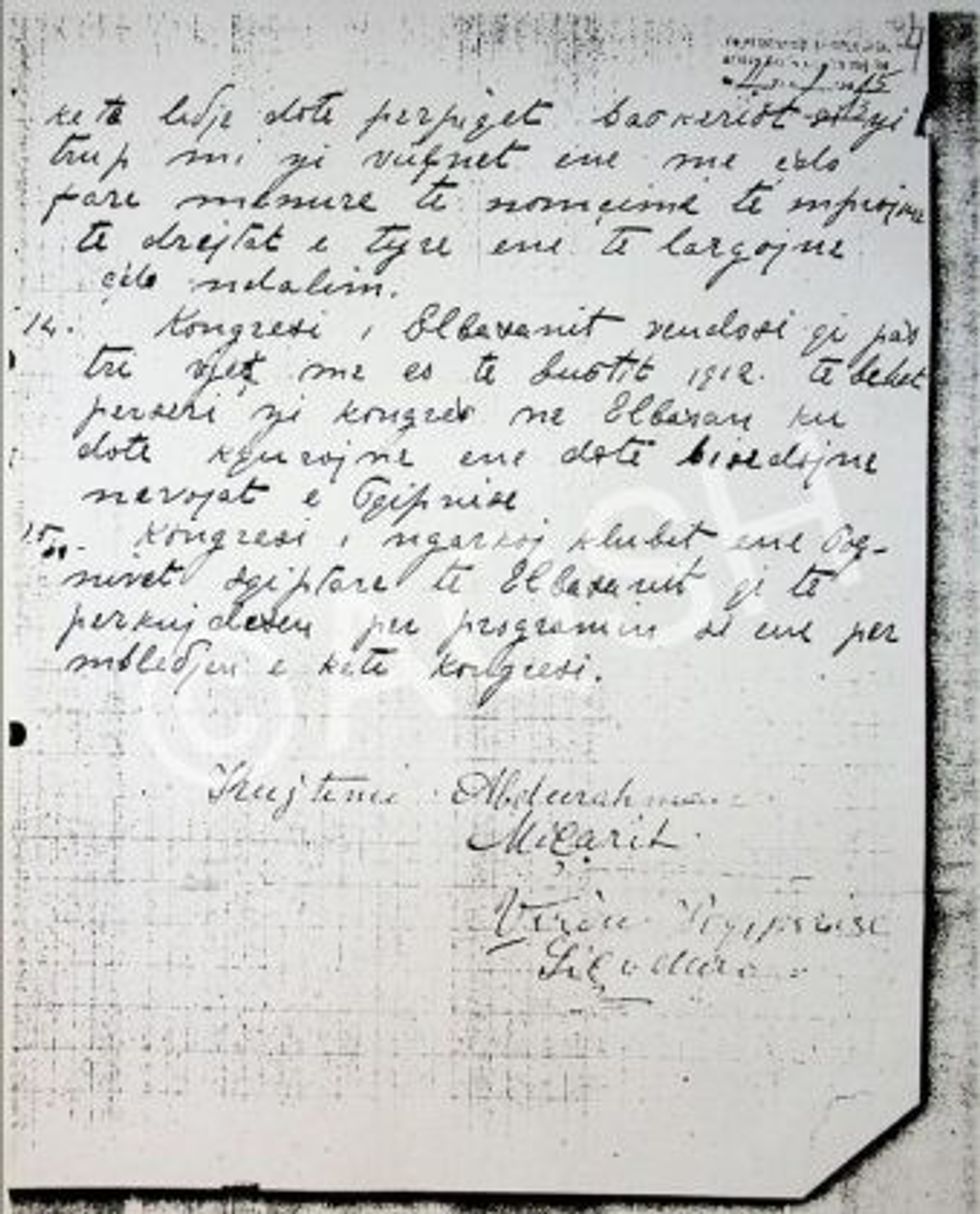 kete ledje dote perpiqet baskerist
trup mi nji vufnet ene me çdo
fare menure te nomçime te mprojne
te drejtat e tyre ene te largojne
çdo ndalim.
14. Kongresi i Elbasanit vendosi qi pas
tri vjet me es te Gustit 1912. te behet
perseri nji kongres ne Elbasan ku
dote kqyrojne ene dote bisedojne
nevojat e Sqipnise
15. Kongresi i ngarkoj klubet ene Sog-
nivet sqiptare te Elbasanit qi te
perkujdesen per programin si ene per
mbledjen e kete kongresi.
Kujtime Abdurahman
Miçarit
©ALSH